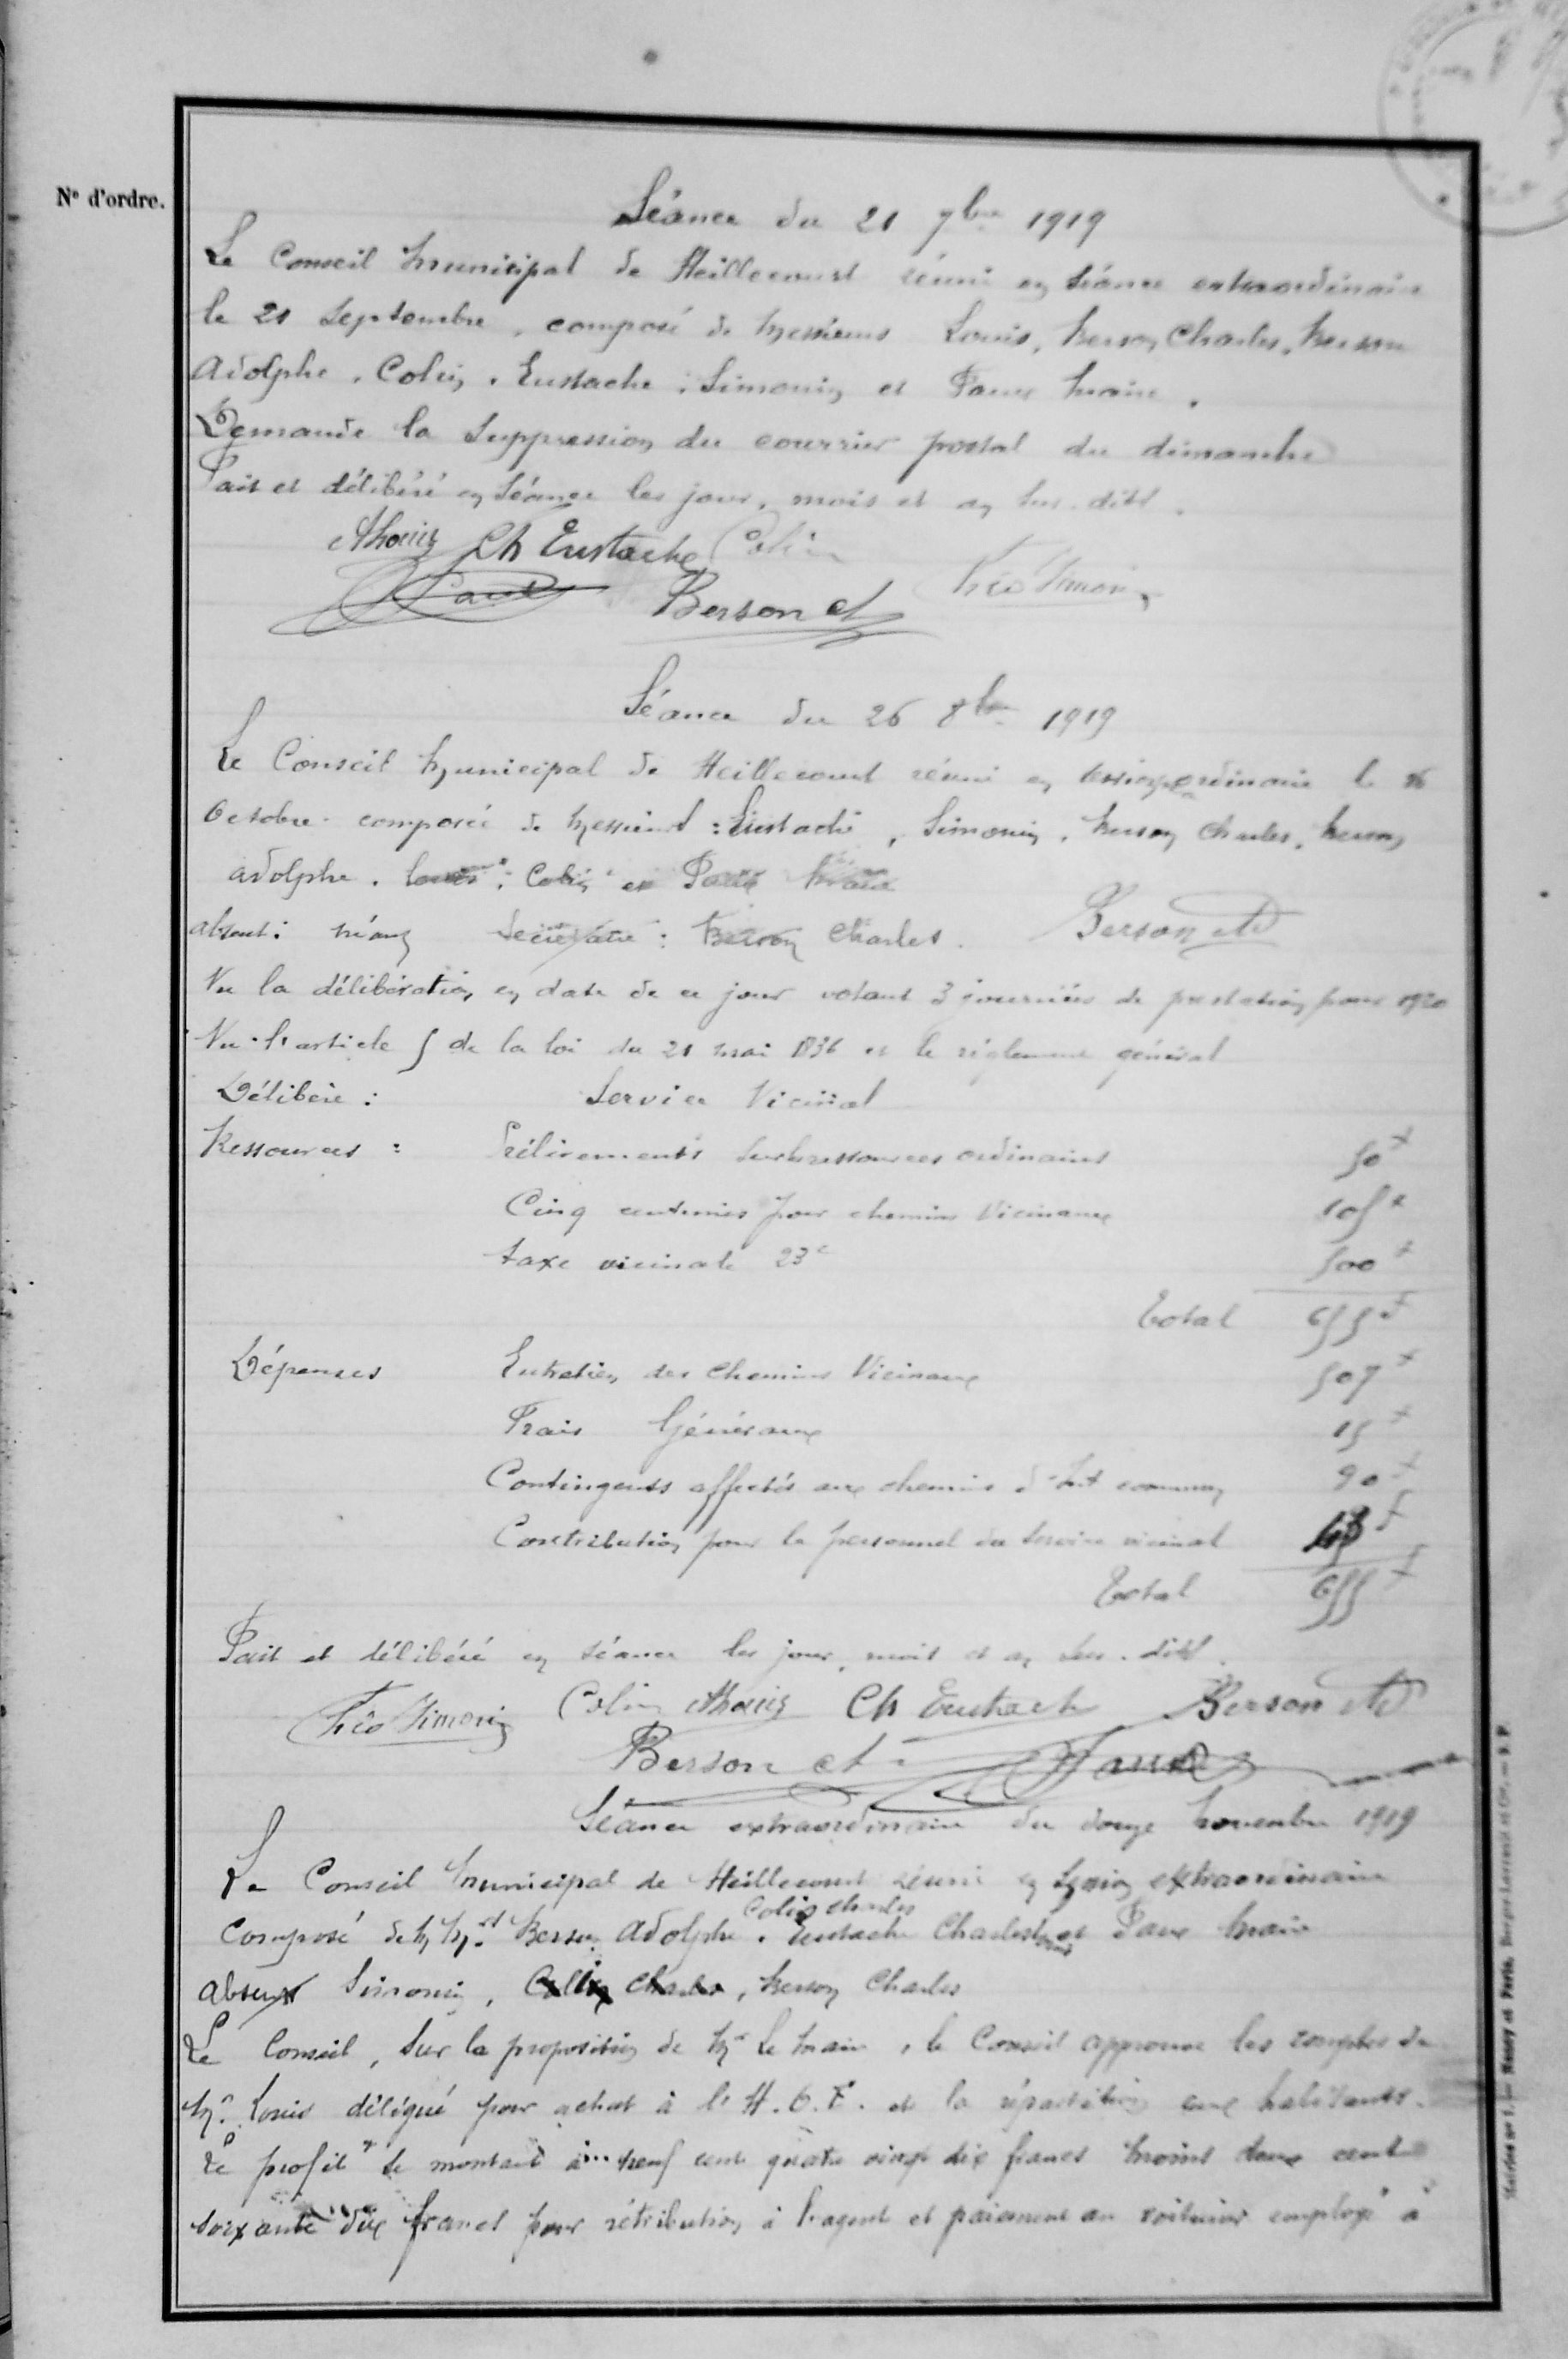 N° d'ordre.
Séance du 21 7bre 1919
Le Conseil Municipal de Heillecourt réuni en séance extraordinaire
le 21 Septembre, composé de Messieurs Louis, Berson Charles, Berson
Adolphe, Colin, Eustache, Simonin et Faux Maire.
Demande la suppression du courrier postal du dimanche
Fait et délibéré en séance les jour, mois et an sus-dits.
Ch Eustache Colin
Berson ch Théo Simonin
Séance du 26 8bre 1919
Le Conseil Municipal de Heillecourt réuni en session ordinaire le 26
Octobre composé de Messieurs : Eustache, Simonin, Berson Charles, Berson
Adolphe, Louis, Colin et Faux Maire
absent : néant Secrétaire : Berson Charles. Berson Ad
Vu la délibération en date de ce jour votant 3 journées de prestation pour 1920
Vu l'article 5 de la loi du 21 mai 1836 et le règlement général
Délibère : Service Vicinal
Ressources : Prélèvements sur les ressources ordinaires 50 f
Cinq centimes pour chemins vicinaux 105 f
taxe vicinale 23c 500 f
Total 655 f
Dépenses Entretien des chemins Vicinaux 507 f
Frais Généraux 15 f
Contingents affectés aux chemins d'Int commun 90 f
Contribution pour le personnel du service vicinal 43 f
Total 655 f
Fait et délibéré en séance les jour, mois et an sus-dits.
Théo Simonin Colin Ch Eustache Berson Ad
Berson ch Faux
Séance extraordinaire du douze Novembre 1919
Le Conseil Municipal de Heillecourt réuni en session extraordinaire
Colin Charles
Composé de MMrs Berson Adolphe, Eustache Charles, Louis et Faux Maire
absents Simonin, Colin Charles, Berson Charles
Le Conseil, sur la proposition de Mr le Maire, le Conseil approuve les comptes de
Mr Louis délégué pour achat à l'H.O.E. et la répartition aux habitants.
Le profit se montant à neuf cent quatre vingt dix francs moins deux cent
soixante dix francs pour rétribution à l'agent et paiement au voiturier employé à